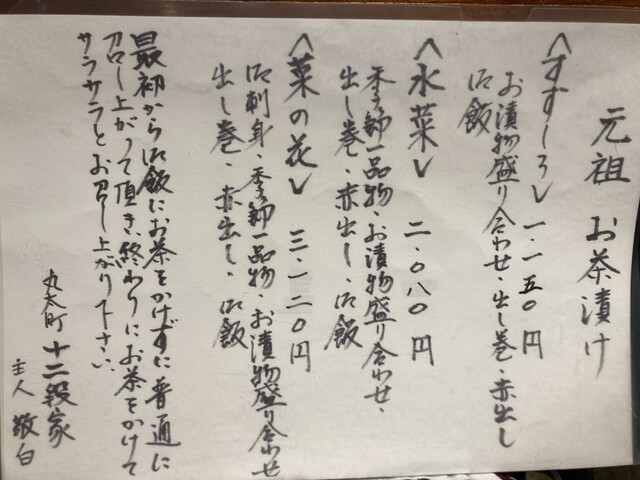 元祖 お茶漬け
<すずしろ> 一・一五〇円
お漬物盛り合わせ・出し巻・赤出し
御飯
<水菜> 二・〇八〇円
季節一品物・お漬物盛り合わせ・
出し巻・赤出し・御飯
<菜の花> 三・一二〇円
御刺身・季節一品物・お漬物盛り合わせ
出し巻・赤出し・御飯
最初から御飯にお茶をかけずに普通に
召し上がって頂き、終わりにお茶をかけて
サラサラとお召し上がり下さい。
丸太町 十二段家
主人 敬白